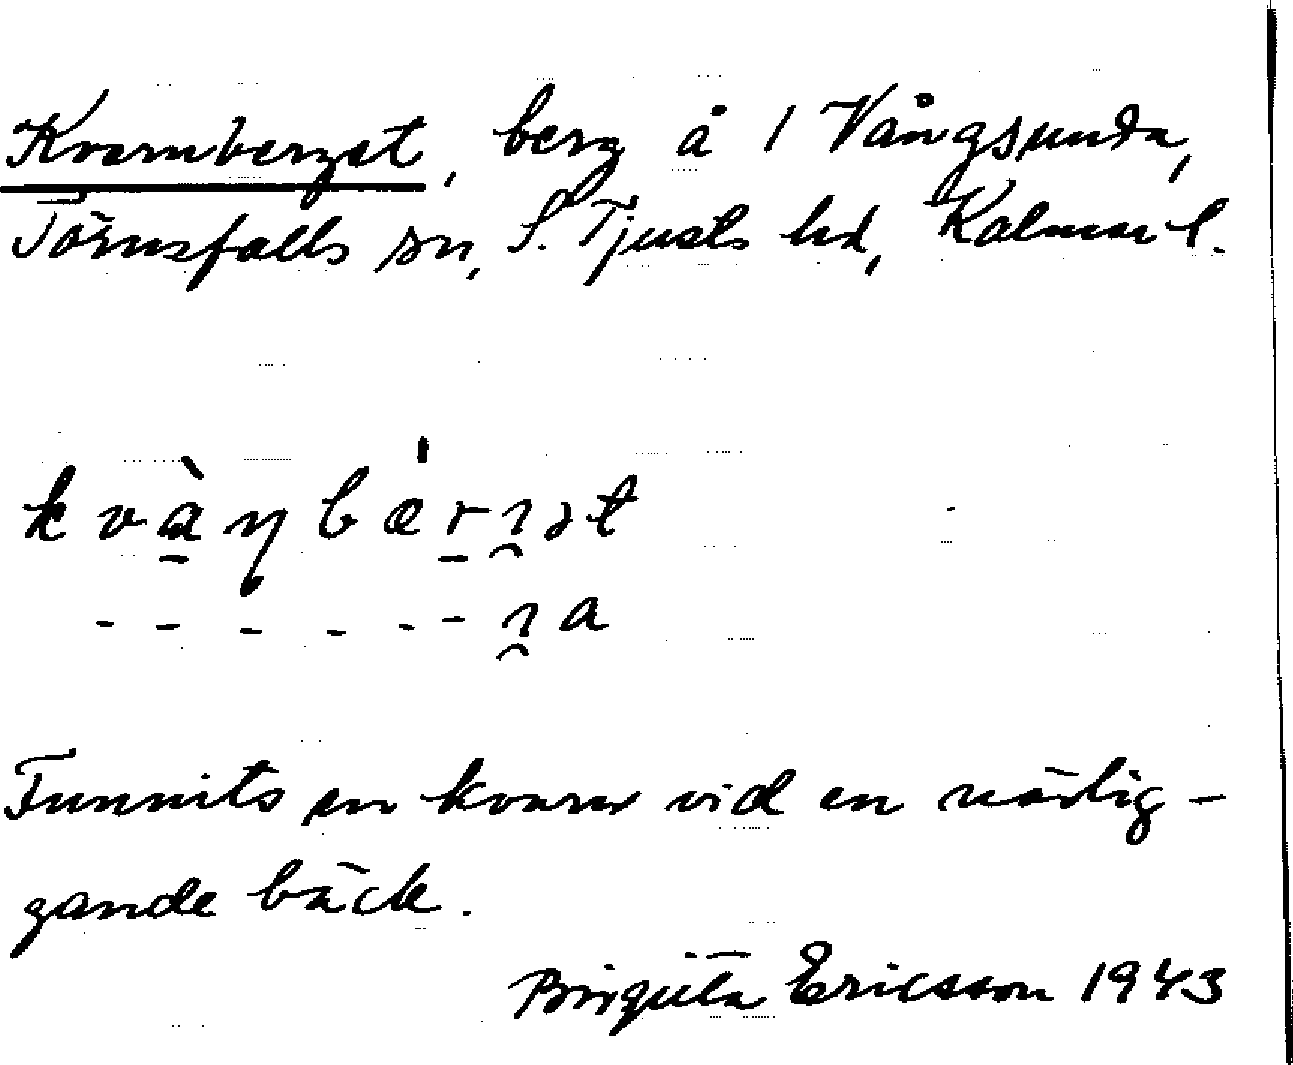 Kvarnberget, berg å 1 Vångsunda,
Törnsfalls sn, S. Tjusts hd, Kalmar l.
kvàṇbær̲ı̯ət
- - - - - - ı̯a
Funnits en kvarn vid en närlig-
gande bäck.
Birgitta Ericsson 1943